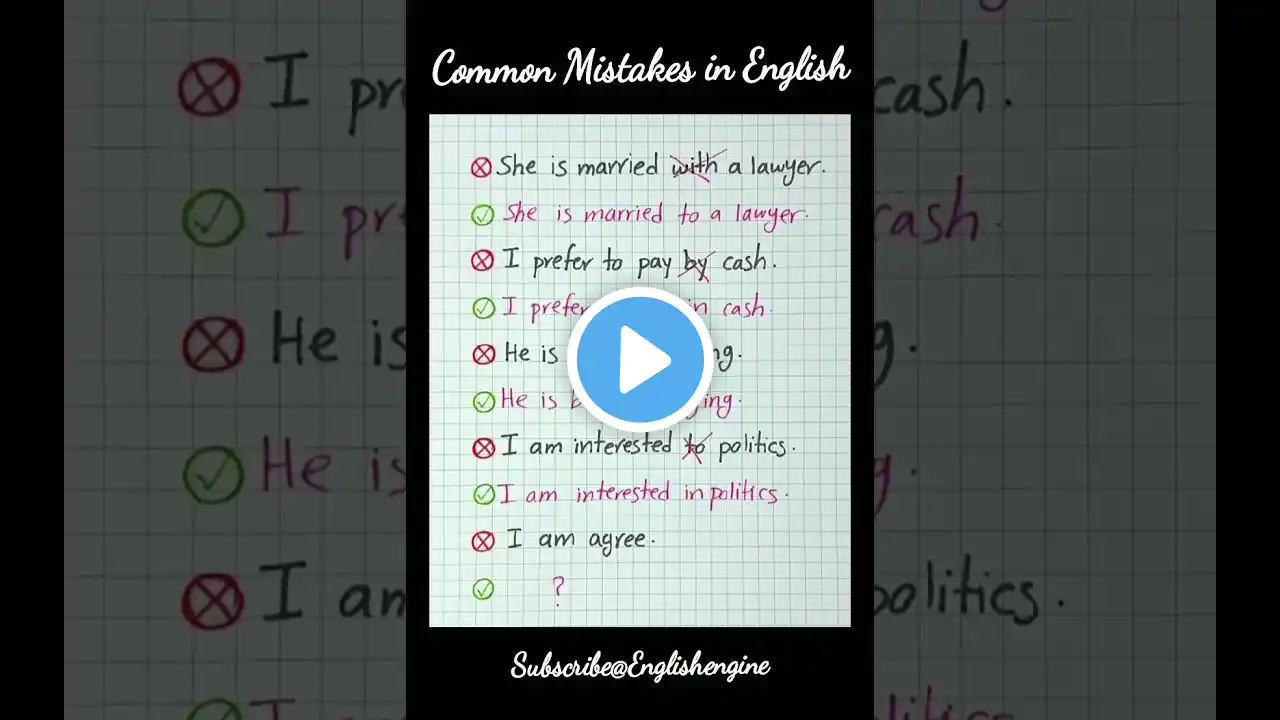 Common Mistakes in English
She is married with a lawyer.
She is married to a lawyer.
I prefer to pay by cash.
I prefer in cash.
He is
He is
I am interested to politics.
I am interested in politics.
I am agree.
?
Subscribe@Englishengine